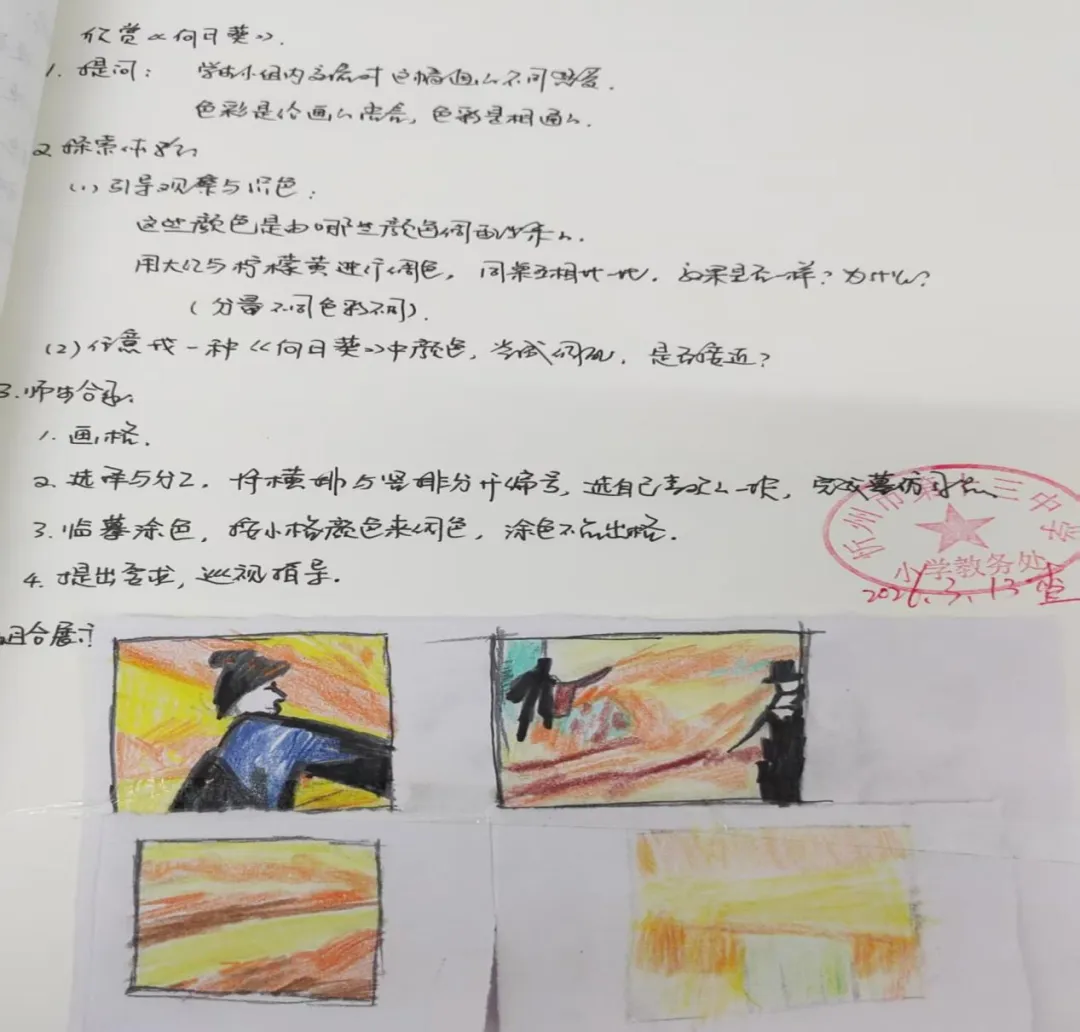 欣赏《向日葵》.
1. 提问： 学生小组内交流对这幅画的不同感受.
色彩是绘画的 ，色彩是相通的.
2. 探索体验
(1) 引导观察与 色：
这些颜色是由哪些颜色调配出来的.
用大红与柠檬黄进行调色，同桌互相比一比，效果是否一样？为什么？
(分量不同色彩不同).
(2) 任意找一种《向日葵》中颜色，尝试调配，是否接近？
3. 师生合
1. 画格.
2. 选择与分工，将横排与竖排分开编号，选自己喜欢的一块，完成摹仿
3. 临摹涂色，按小格颜色来调色，涂色不能出格.
4. 提出要求，巡视指导.
组合展示
忻州市第十三中学
小学教务处
2026.3.13 查